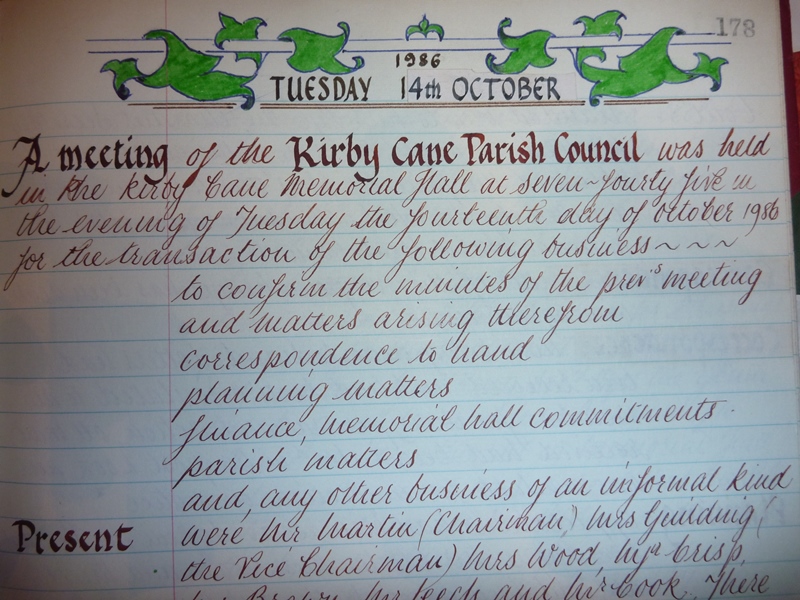 178
1986
TUESDAY 14th OCTOBER
A meeting of the Kirby Cane Parish Council was held
in the Kirby Cane Memorial Hall at seven~fourty five in
the evening of Tuesday the fourteenth day of October 1986
for the transaction of the following business~ ~ ~
to confirm the minutes of the prev's meeting
and matters arising therefrom
correspondence to hand
planning matters
finance, memorial hall commitments.
parish matters
and, any other business of an informal kind
Present were Mr Martin (Chairman) Mrs Guilding (
the Vice Chairman) Mrs Wood, Mr Crisp,
Brown, Mr Leech and Mr Cook. There